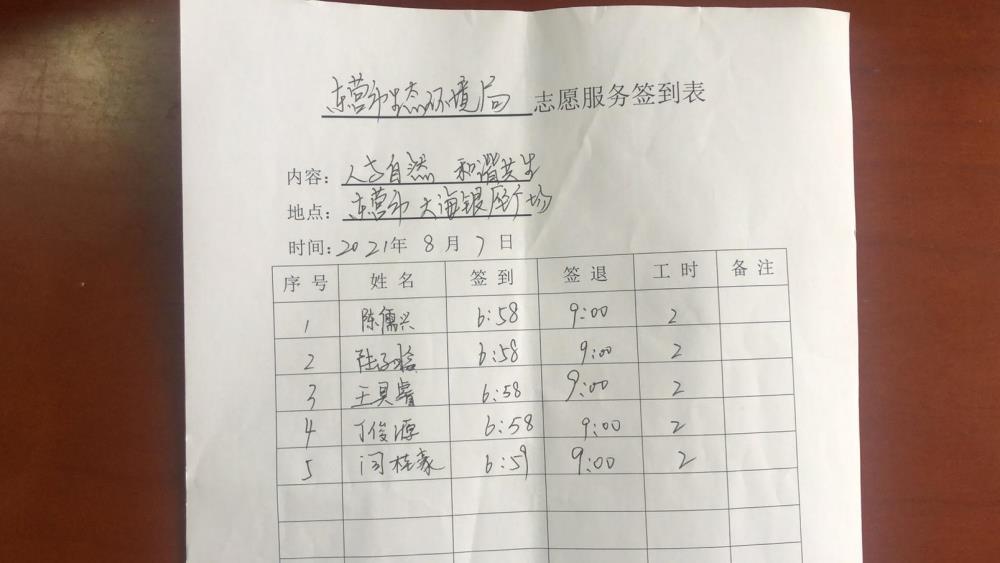 东营市生态环境局 志愿服务签到表
内容：人与自然 和谐共生
地点：东营市 大海银座广场
时间：2021年 8 月 7 日
序号 姓名 签到 签退 工时 备注
1 陈儒兴 6:58 9:00 2
2 6:58 9:00 2
3 王具睿 6:58 9:00 2
4 丁俊源 6:58 9:00 2
5 闫桂豪 6:59 9:00 2